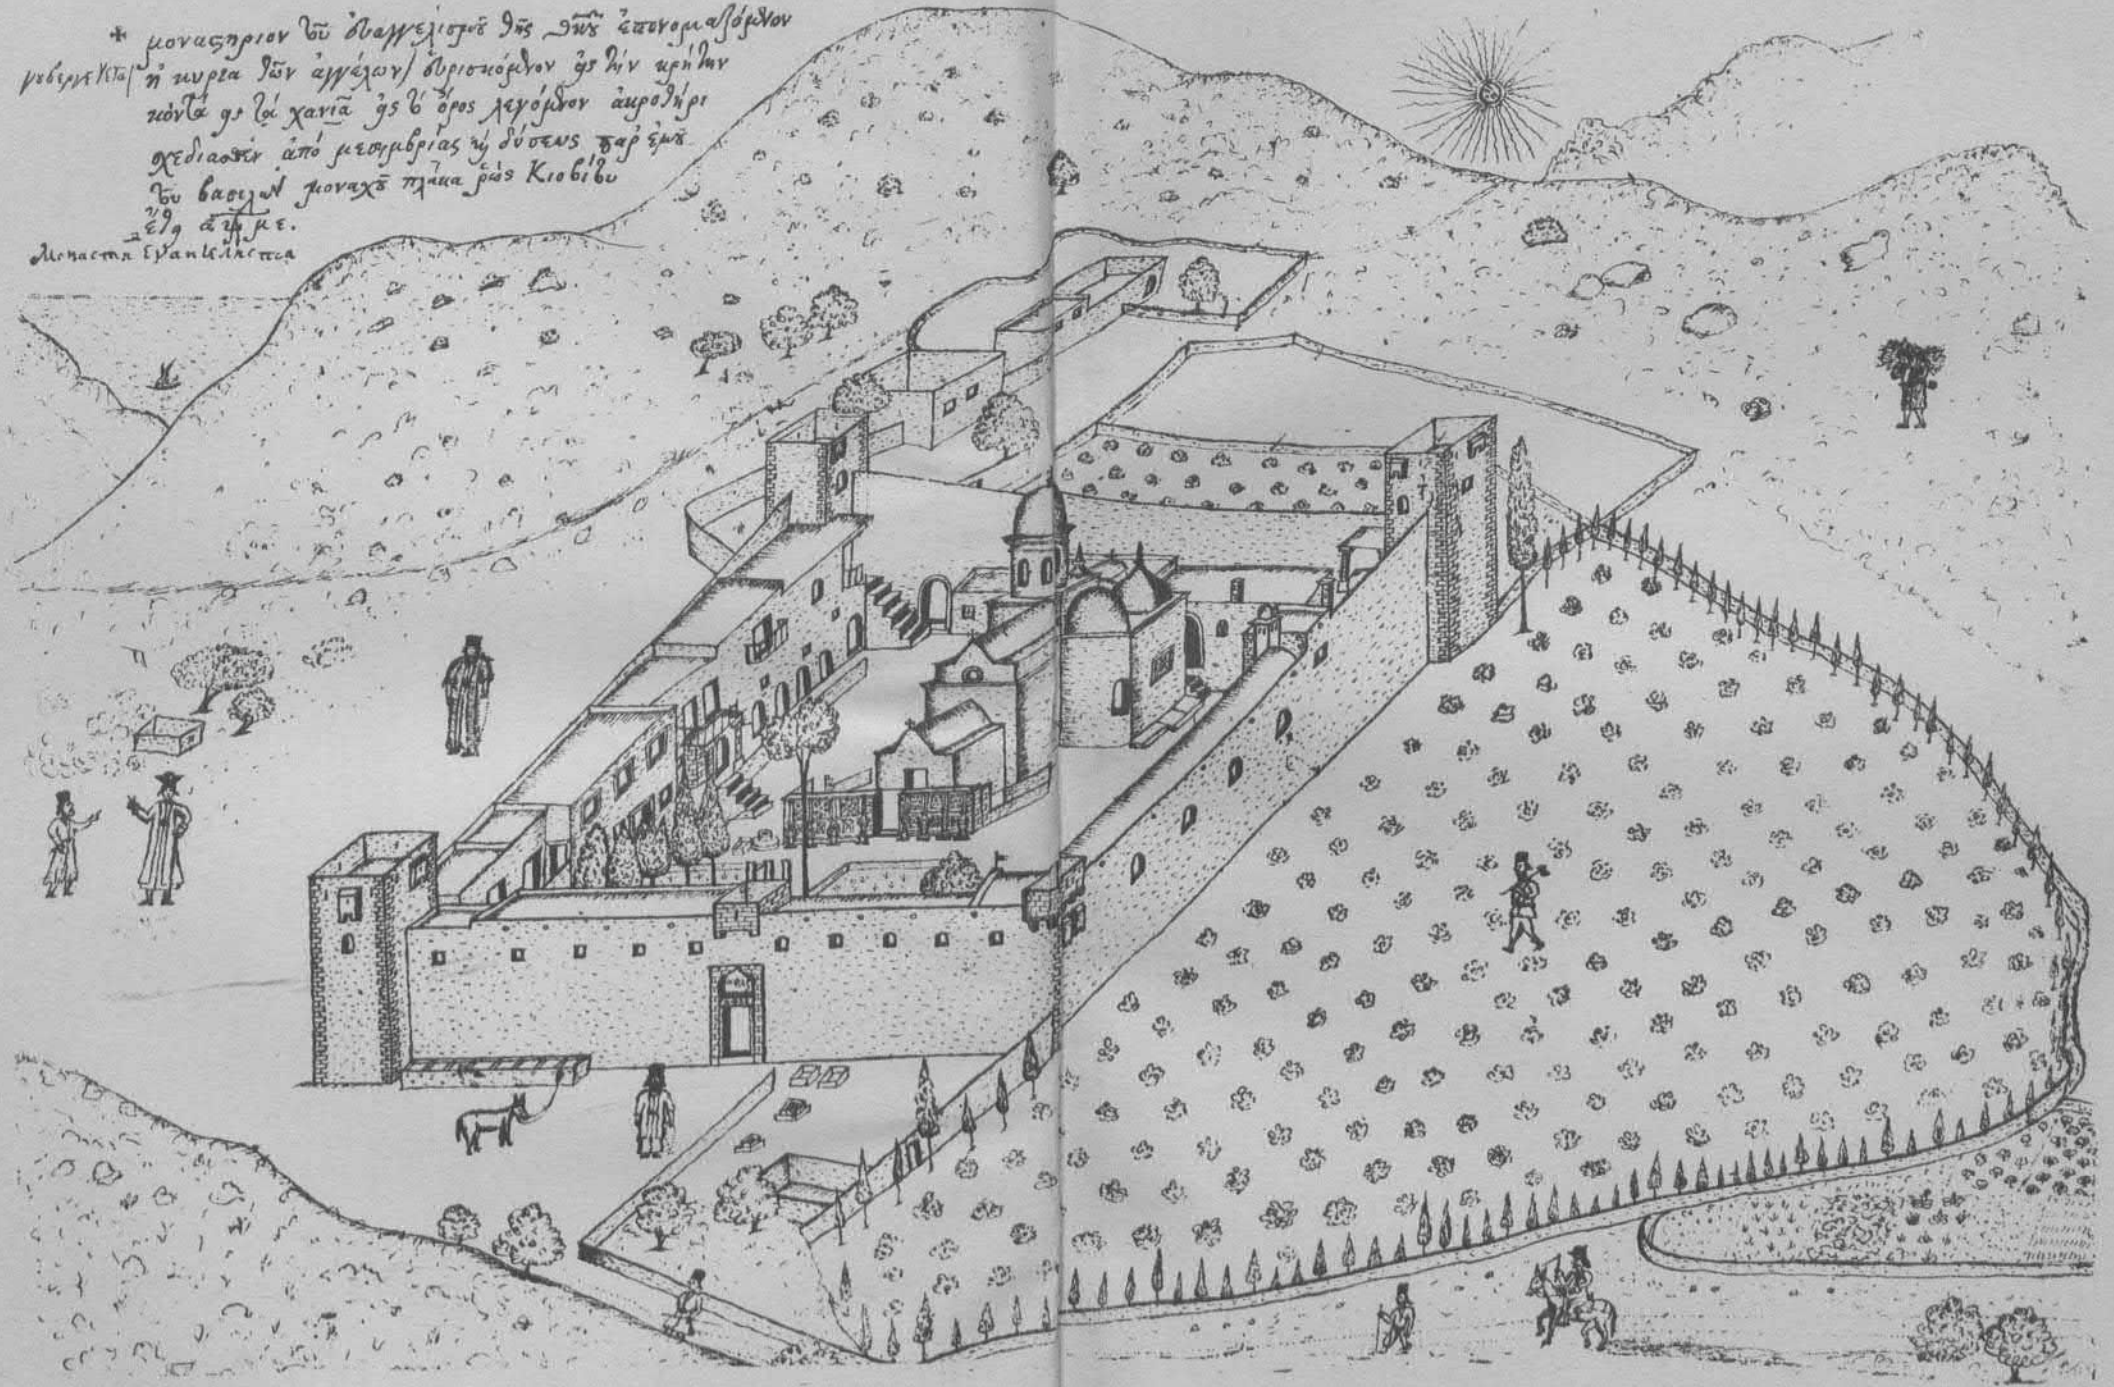 + μοναςηριον τοῦ ἐυαγγελισμοῦ τῆς θκου ἐπονομαζόμενον
γουβερνέτα/ ἡ κυρία τῶν ἀγγέλων/ ἑυρισκόμενον εἰς τὴν κρήτην
κοντὰ εἰς τὰ χανιᾶ εἰς τὸ ὄρος λεγόμενον ἀκροτήρι
σχεδιασθὲν ἀπὸ μεσιμβρίας κὶ δύσεως παρ ἐμοῦ
τοῦ βασιλείου μοναχοῦ πλάκα ρῶς Κιοβίτου
ἔτει αψμε.